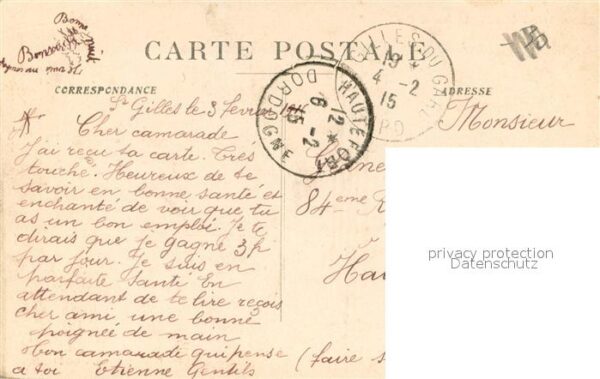 Bonne
CARTE POSTALE
CORRESPONDANCE
ADRESSE
St GILLES DU GARD
19
4 -2
15
HAUTEFORT
6 -2
15
DORDOGNE
St Gilles le 3 fevrier
Cher camarade
J'ai reçu ta carte. Très
touché. Heureux de te
savoir en bonne santé et
enchanté de voir que tu
as un bon emploi. Je te
dirais que je gagne 3f
par jour. Je suis en
parfaite santé En
attendant de te lire reçois
cher ami une bonne
poignée de main
Mon camarade qui pense
a toi Etienne Gentils
Monsieur
84eme R
Hau
(faire s
privacy protection
Datenschutz